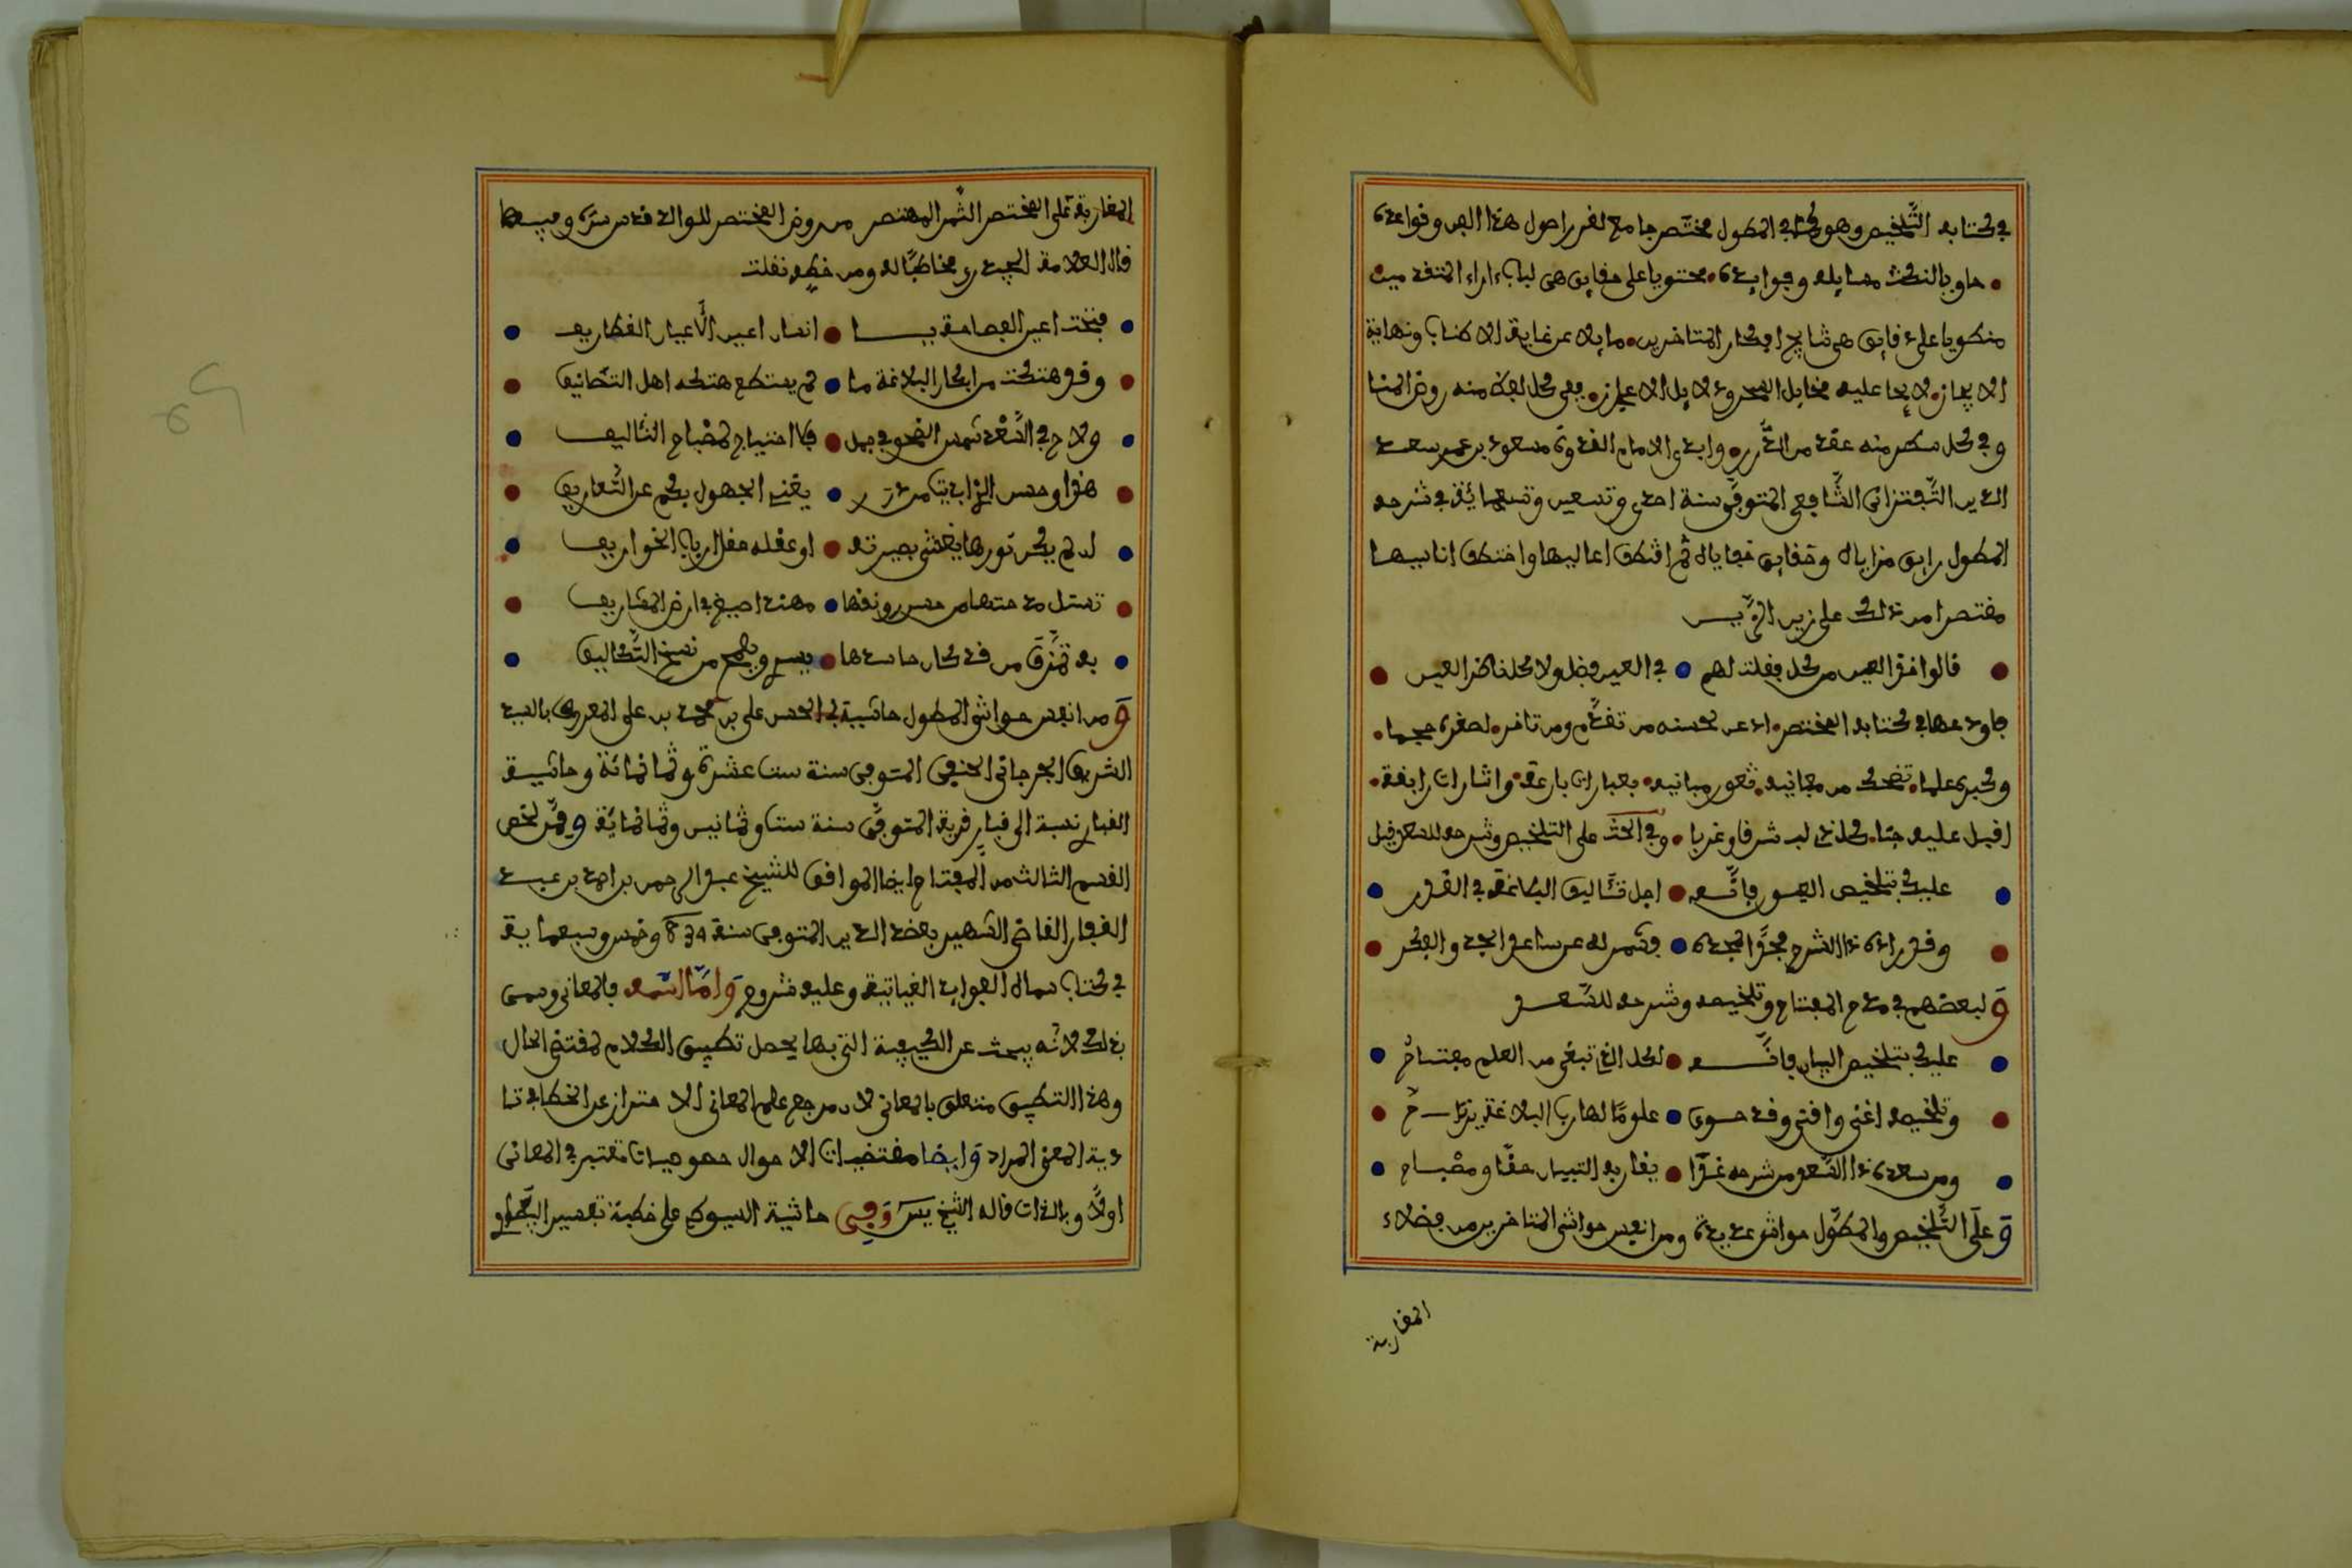 في كتابه التَّلخيص وهو كما في المطول مختصر جامع لغرر اصول هذا الفن وقواعده
حاو بالنكث مسايله وفوايده محتويا على حقايق هي لباب ءاراء المتقدمين
منطويا على دقايق هي نتايج افكار المتاخرين مايلا عن غاية الاطناب ونهاية
الايجاز لايحا عليه مخايل السحر ودلايل الاعجاز ففي كل لفظ منه روض المنا
وفي كل سطر منه عقد من الدُّرر وابدى الامام القدوة مسعود بن عمر سعد
الدين التَّفتزاني الشَّافعي المتوفى سنة احدى وتسعين وسبعمائة في شرحه
المطول رايق مزاياه وحقايق خفاياه ثم اقتطف اعاليها واختطف اناسيها
مقتصرا من ذلك على زين الزَّين
قالوا خذ العين من كل فقلت لهم في العين فضل ولاكن ناظر العين
فاودعها في كتابه المختصر اذعن لحسنه من تقدَّم ومن تاخر لصغره حجما
وكبره علما تضحك من معانيه ثغور مبانيه بعبارات بارعة واشارات رايقة
اقبل عليه جنا كل ذي لب شرقا وغربا وفي الحث على التلخيص وشرحه للسعد قيل
عليك بتلخيص العلوم فانَّه اجل تئاليف البلاغة في القدر
وقد زاده ذا الشرح مجدًا لمجده فشمر له عن ساعد الجد والفكر
وَلبعضهم في مدح المفتاح وتلخيصه وشرحه للسَّعد
عليك بتلخيص البيان فانَّه لكل الذي تبغي من العلم مفتاحُ
وتلخيصه اغنى واقنى وقد حوى علومًا لها رب البلاغة يرتاحُ
ومن سعده ذا السَّعد من شرحه غدا يقاربه التبيان حقًّا ومصباح
وَعلى التَّلخيص والمطوَّل حواشي عديدة ومن انفس حواشي المتاخرين من فضلاء
المغاربة
المغاربة على المختصر الثمر المهتصر من روض المختصر للوالد قدس سره وفيه
قال العلامة مخاطبًا له ومن خطه نقلت
فتحت اعين الفصاحة يا انسان اعين الأعيان الغطاريف
وقد هتكت من ابكار البلاغة ما لم يستطع هتكه اهل التصانيف
ولاح في السَّعد شمس النحو فبمل فلا احتياج لمصباح التئاليف
هذا وحسن الزَّاينات من درر يغني الجهول بكم عن التَّعاريف
لم يكن نورها يغشى بصيرته او عقله عقل ارباب الخواريف
تستل مدحتها من حسن رونقها مهند اصيغ في ارض المشاريف
به تمزق من قد كان حاسدها يسبح من نسخ التَّكاليف
وَمن انفس حواشي المطول حاشية ابي الحسن علي بن محمد بن علي المعروف بالسيد
الشريف الجرجاني الحنفي المتوفى سنة ست عشرة وثمانمائة وحاشية
الفنار نسبة الى فنار قرية المتوفى سنة ست وثمانين وثمانمائة وقد لخص
القسم الثالث من المفتاح ايضا الموافق للشيخ عبد الرحمن بن احمد بن عبد
الغفار القاضي الشهير بعضد الدين المتوفى سنة 834 وخمس وسبعماية
في كتاب سماه الفوايد الغياثية وعليه شروح وَامَّا اسمه فالمعاني وسمى
بذلك لانَّه يبحث عن الكيفية التي بها يحصل تطبيق الكلام لمقتضى الحال
وهذا التطبيق متعلق بالمعاني لان مرجع علم المعاني الاحتراز عن الخطا في تا
دية المعنى المراد وَايضا مقتضيات الاحوال خصوصيات تعتبر في المعاني
اولًا وبالذات قاله الشيخ يس وَفي حاشية السيوطي على خطبة تفسير